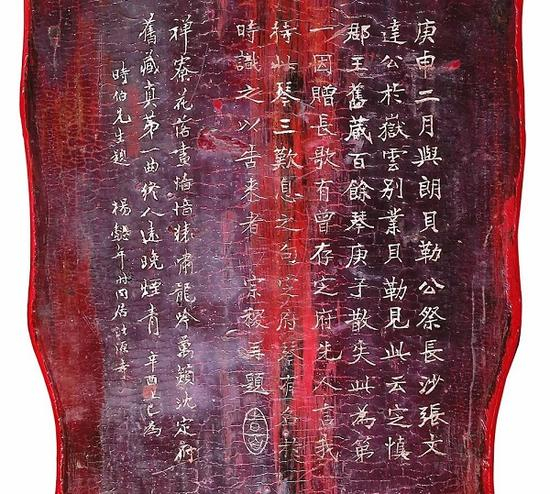 庚申二月與朗貝勒公祭長沙張文
達公於嶽雲別業貝勒見此云定慎
郡王舊藏百餘琴庚子散失此為第
一因贈長歌有曾存定府先人言我
持此琴三歎息之句定府琴有名於
時識之以告來者 宗稷再題
禅寮花落晝愔愔猿嘯龍吟萬籟沈定府
舊藏真第一曲終人遠曉煙青 辛酉上巳為
時伯先生題 楊懿年時同居法源寺